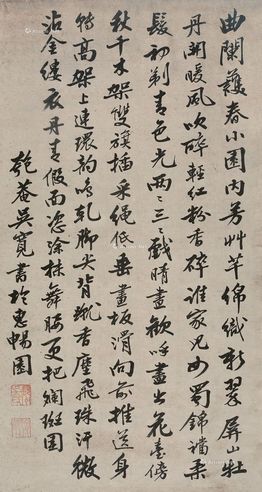 曲闌護春小園内芳艸芊綿織新翠屏山牡
丹開暖風吹醉輕紅粉香碎誰家兒女蜀錦襠柔
髮初剃青色光兩兩三三戲晴晝歡呼畫出花臺傍
秋千木架雙簇插采繩低垂畫板滑向前推送身
特高架上連環韵鳴乾脚尖背蹴香塵飛珠汗微
沾金縷衣丹青假面恣塗抹舞腰更把斓斑圍
匏菴吳寬書於忠暢園